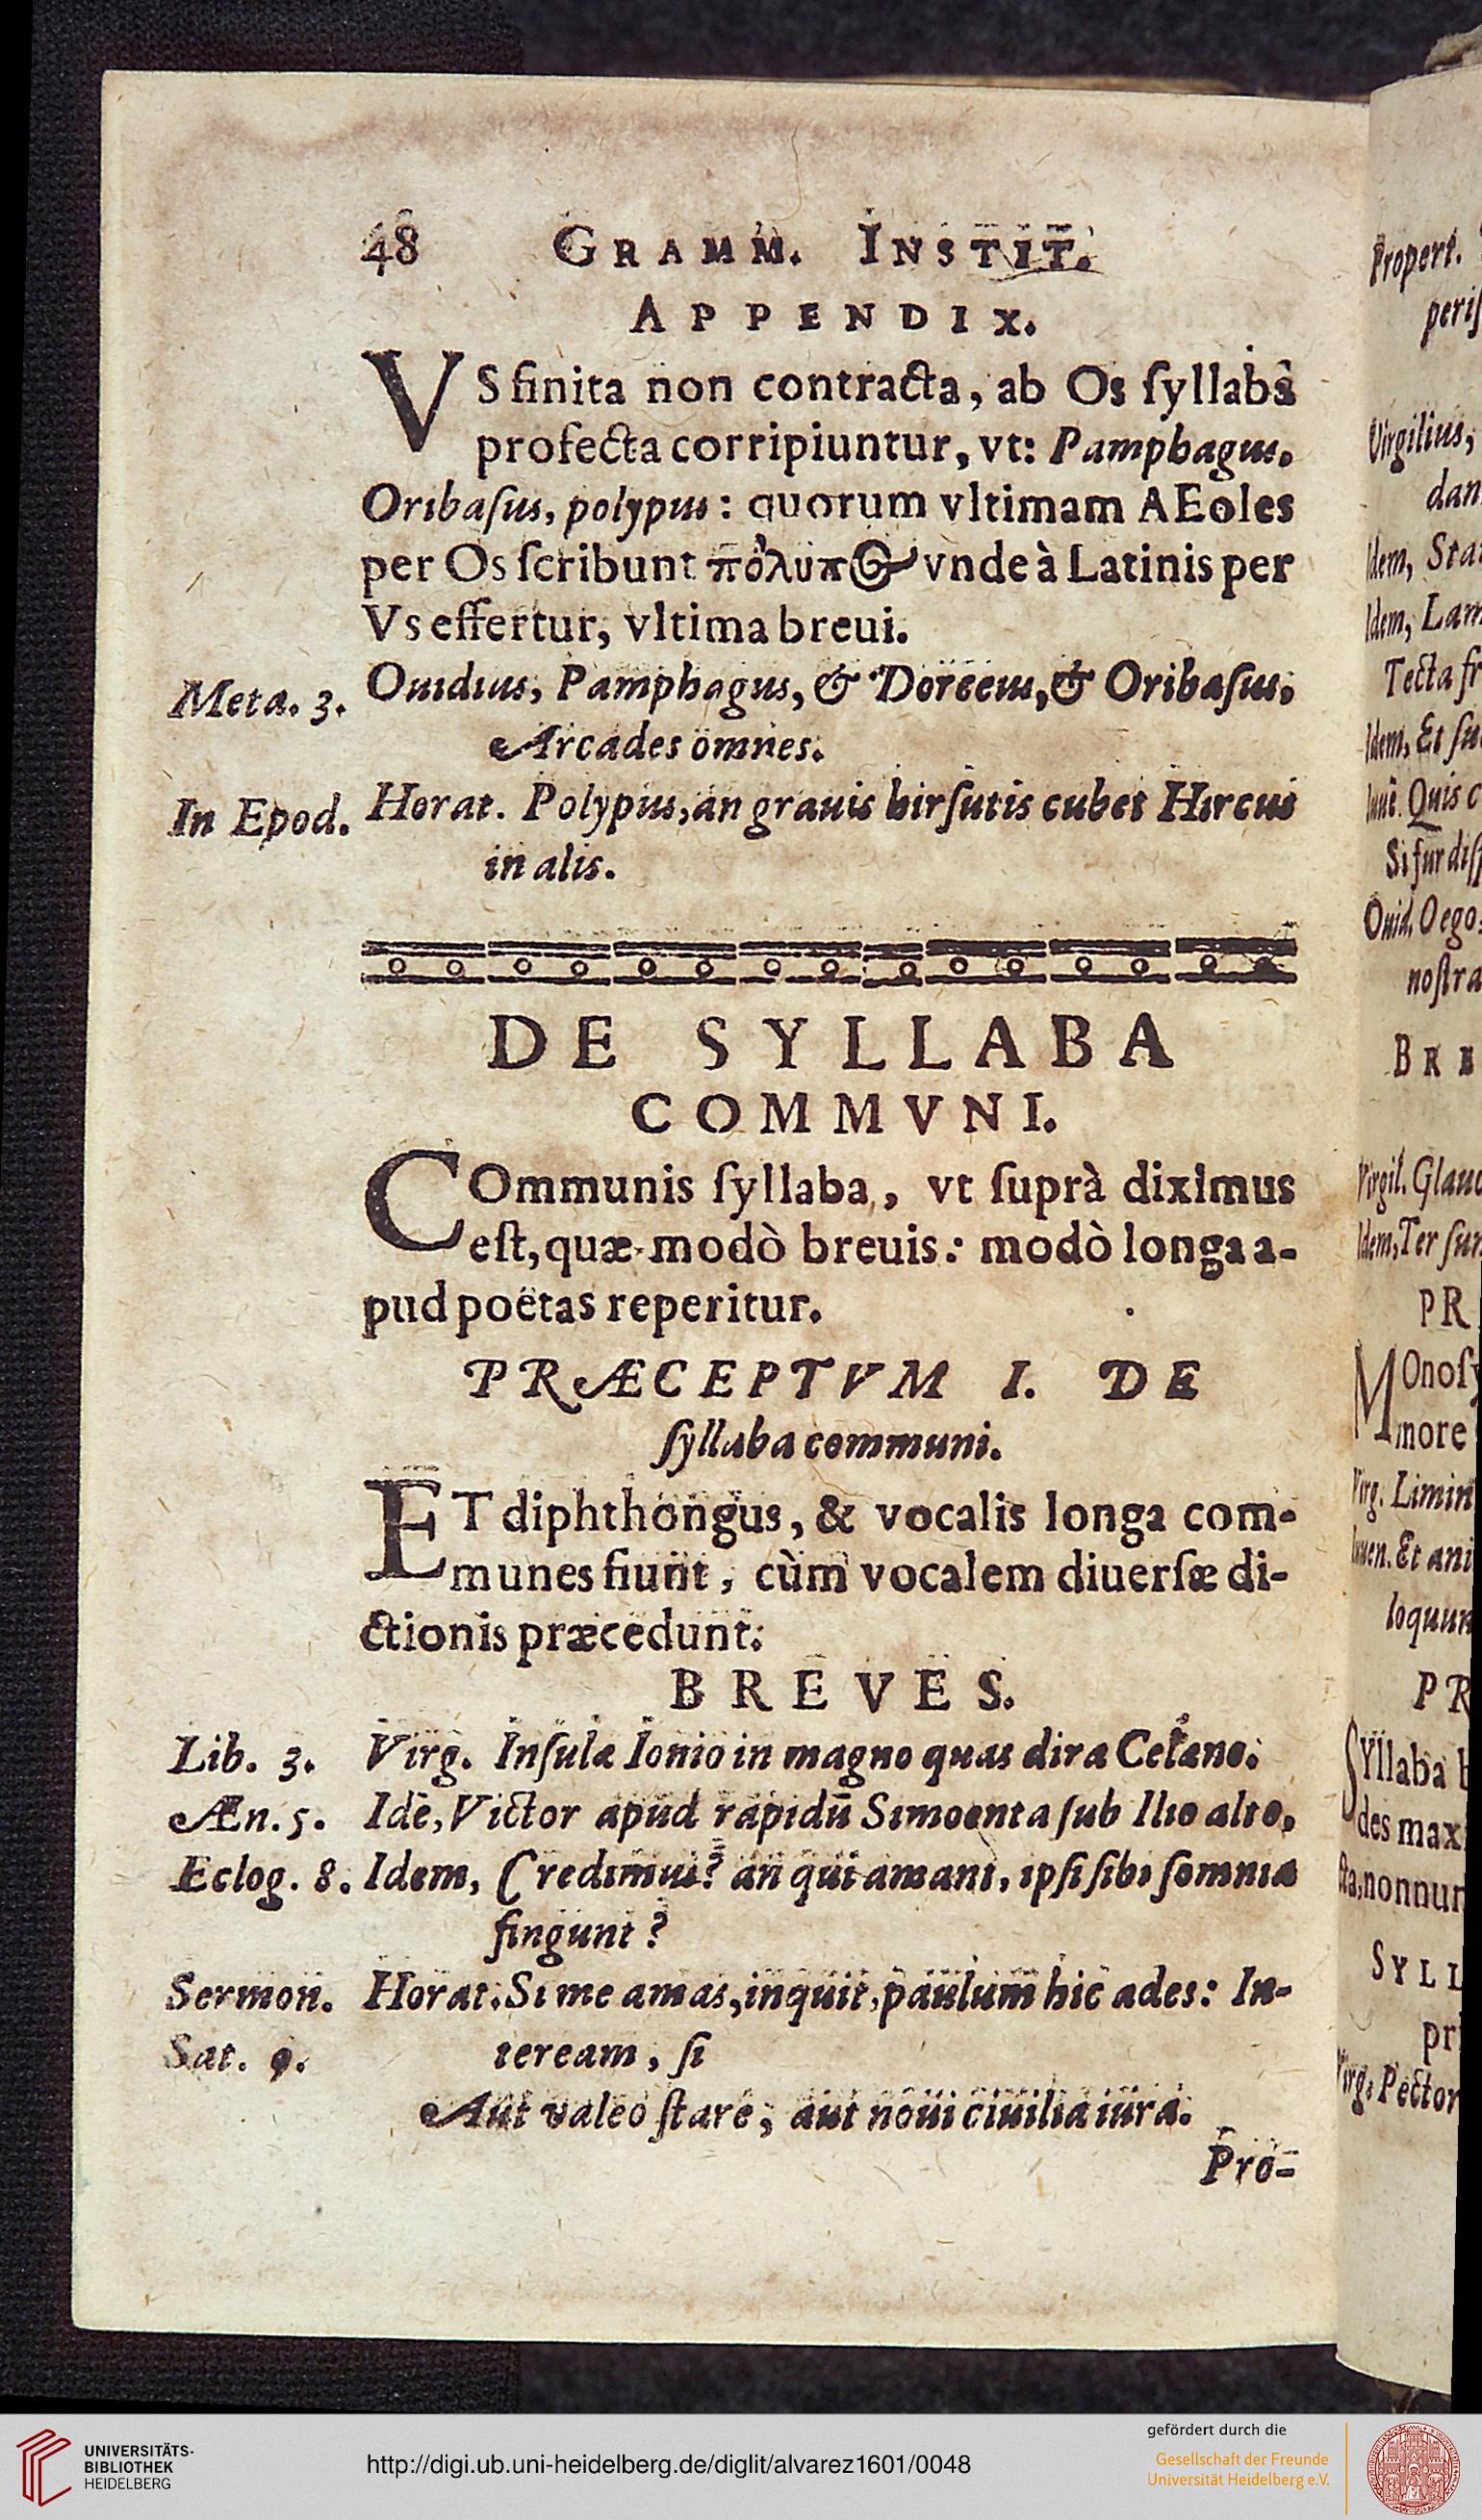 48 GRAMM. INSTIT.
APPENDIX.
VS finita non contracta, ab Os ſyllabâ
profecta corripiuntur, vt: Pamphagus.
Oribaſus, polypus: quorum vltimam AEoles
per Os ſcribunt πόλυπος vnde à Latinis per
Vs effertur, vltima breui.
Meta. 3. Ouidius, Pamphagus, & Dorceus, & Oribaſus,
Arcades omnes.
In Epod. Horat. Polypus, an grauis hirſutis cubet Hircus
in alis.
DE SYLLABA
COMMVNI.
COmmunis ſyllaba, vt ſuprà diximus
eſt, quæ modò breuis: modò longa a-
pud poëtas reperitur.
PRÆCEPTVM I. DE
ſyllaba communi.
ET diphthongus, & vocalis longa com-
munes fiunt, cùm vocalem diuerſæ di-
ctionis præcedunt.
BREVES.
Lib. 3. Virg. Inſulæ Ionio in magno quas dira Celæno.
Æn. 5. Idē, Victor apud rapidū Simoenta ſub Ilio alto,
Eclog. 8. Idem, Credimus? an qui amant, ipſi ſibi ſomnia
fingunt?
Sermon. Horat. Si me amas, inquit, paulum hic ades: In-
Sat. 9. teream, ſi
Aut valeo ſtare, aut noui ciuilia iura.
Pro-
Propert.
Virgilius,
dan
Idem, Sta
Idem, Lam
Tecta fr
Idem, Et ſu
Quis c
Si fur diſ
Ouid. O ego
noſtra
BRE
Virgil. Glauc
Idem, Ter ſun
PR
Monoſy
more
Virg. Limin
Iuuen. Et ani
loquun
PR
Syllaba b
des max
cta, nonnun
SYLL
pri
Virg. Pector
UNIVERSITÄTS-
BIBLIOTHEK
HEIDELBERG
http://digi.ub.uni-heidelberg.de/diglit/alvarez1601/0048
gefördert durch die
Gesellschaft der Freunde
Universität Heidelberg e.V.